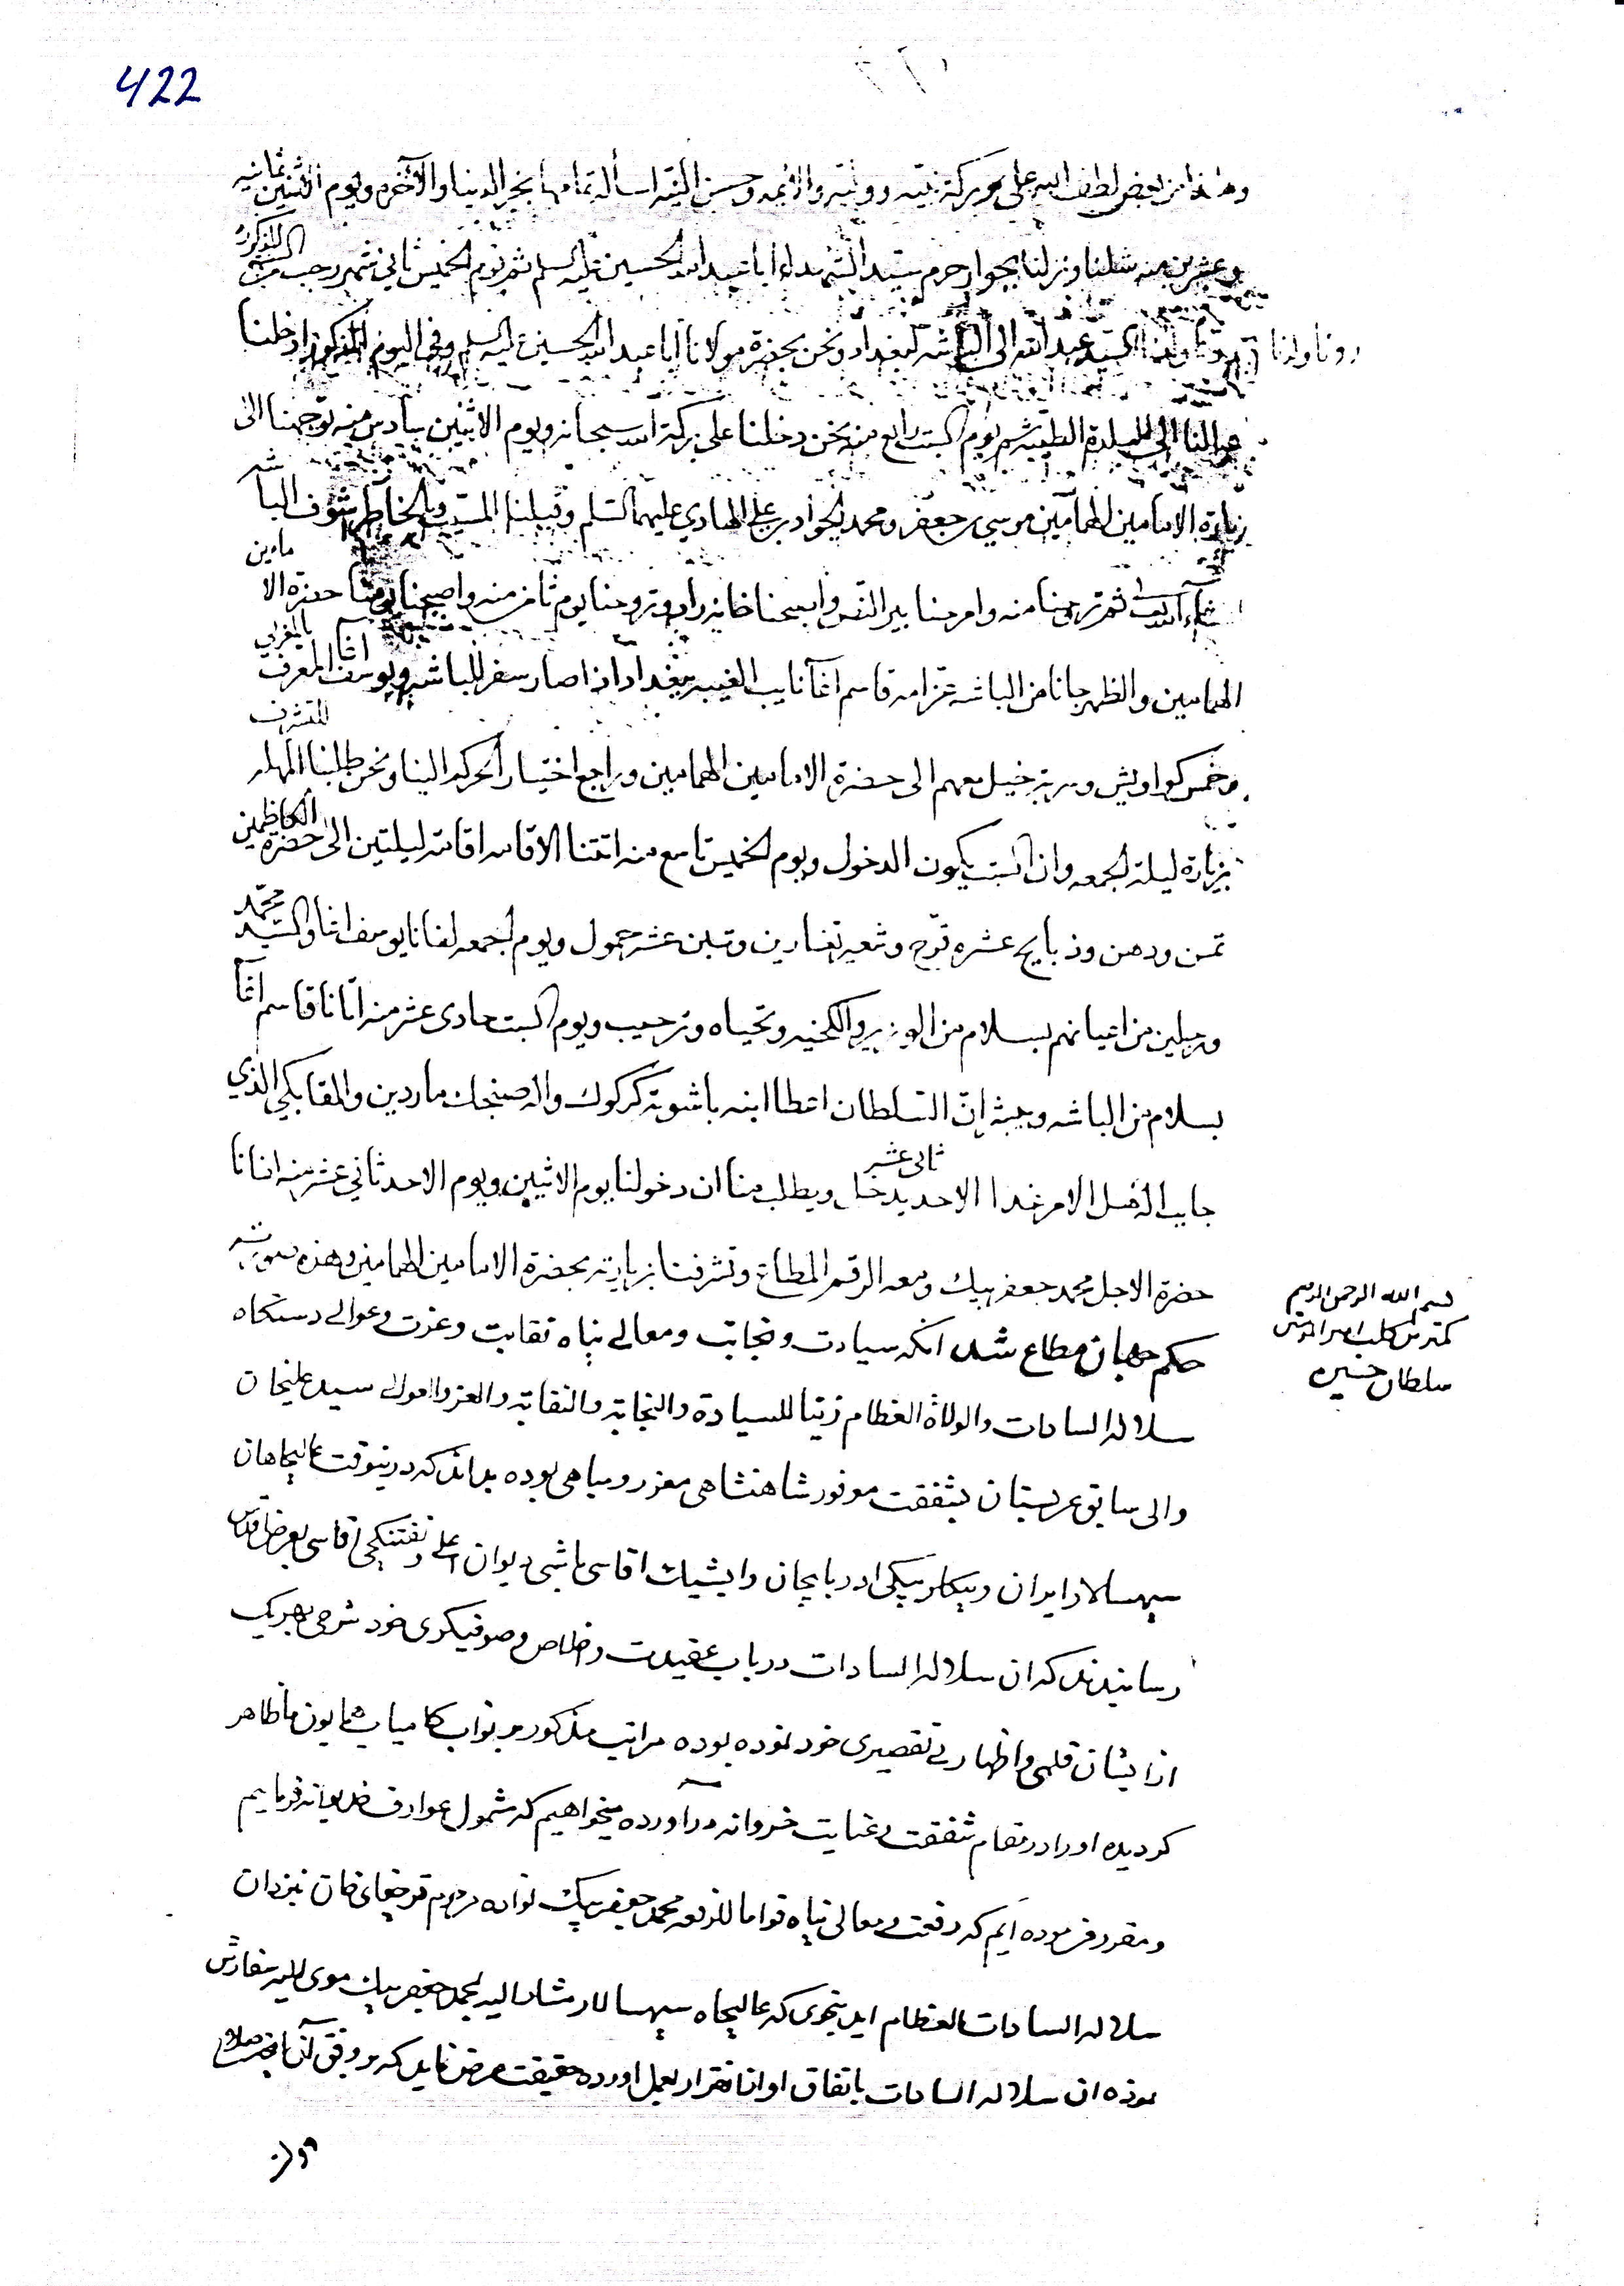 422
وهذا من بعض لطف الله علي وبركة نبيه ووليه والائمه وحسن النيه اسأله تمامها بخير الدنيا والآخره ويوم الاثنين ثمانيه
وعشرين منه شلنا ونزلنا بجوار حرم سيد الشهداء ابا عبد الله الحسين عليه السلم ثم يوم الخميس ثاني شهر رجب من السنه المذكوره
ولدنا السيد عبد الله الى الباشه لبغداد ونحن بحضرة مولانا ابا عبد الله الحسين عليه السلم وفي اليوم المذكور ادخلنا
عيالنا الى البلدة الطيبه ثم يوم السبت رابع منه نحن دخلنا على بركة الله سبحانه ويوم الاثنين سادس منه توجهنا الى
زيارة الامامين الهمامين موسى بن جعفر ومحمد الجواد بن علي الهادي عليهما السلم وقبلنا المسيب وبالخاطر نشوف الباشه
ان شاء الله تعالى ثم تروحنا منه وامرحنا بير النص واصبحنا خانه زاد وتروحنا يوم ثامن منه واصبحنا يومنا حضرة الامامين
الهمامين والظهر جانا من الباشه عزامه قاسم آغا نايب الغيبه ببغداد اذا صار سفر للباشه ويوسف آغا المعرف بالمغرابي
وخمس كواويش وسربة خيل معهم الى حضرة الامامين الهمامين وراجع اختيار الحركه الينا ونحن طلبنا المهله للتشرف
بزيارة ليلة الجمعه وان السبت يكون الدخول ويوم الخميس تاسع منه اتتنا الاقامه اقامة ليلتين الى حضرة الكاظمين
تمن ودهن وذبايح عشره توج وشعير تغارين وتبن عشر حمول ويوم الجمعه لفانا يوسف اغا والسيد محمد
ورجلين من اعيانهم بسلام من الوزير والكخيه وتحياه وترحيب ويوم السبت حادي عشر منه اتانا قاسم آغا
بسلام من الباشه وحيث إنّ السلطان اعطا ابنه باشوية كركوك واله صنجك ماردين والمقابكي الذي
جايب اله الامر غدا الاحد ثاني عشر يدخل ويطلب منا ان دخولنا يوم الاثنين ويوم الاحد ثاني عشر منه اتانا
حضرة الاجل محمد جعفر بيك ومعه الرقم المطاع وتشرفنا بزيارته بحضرة الامامين الهمامين وهذه صورته
بسم الله الرحمن الرحيم
كمترين كلب امير المؤمنين
سلطان حسين
حكم جهان مطاع شد انكه سيادت ونجابت ومعالي پناه نقابت وعزت وعوالي دستكاه
سلاله السادات والولاة العظام زينا للسيادة والنجابة والنقابة والعز والعوالي سيد عليخان
والى سابق عربستان بشفقت موفور شاهنشاهى معزز ومباهى بوده بداند كه درينوقت عاليجاهان
سپهسالار ايران وبيكلربيكى اذربايجان وايشيك اقاسى باشى ديوان اعلى وتفنكچى اقاسى بعرض اقدس
رسانيدند كه ان سلاله السادات درباب عقيدت واخلاص وصوفيكرى خود شرحى بهريك
از ايشان قلمى واظهار بى تقصيرى خود نموده بوده مراتب مذكور بر نواب كامياب همايون ما ظاهر
كرديده اورا در مقام شفقت وعنايت خسروانه درآورده ميخواهيم كه مشمول عوارف خديوانه فرمايم
ومقرر فرموده ايم كه رفعت ومعالى پناه قواما للرفعه محمد جعفر بيك نواده مرحوم قرچغاى خان بنزد ان
سلاله السادات العظام ايد بنحوى كه عاليجاه سپهسالار مشار اليه بمحمد جعفر بيك مومى اليه سفارش
نموده ان سلاله السادات باتفاق او انا بقرار بعمل اورده حقيقت عرض نمايد كه بر وفق آن